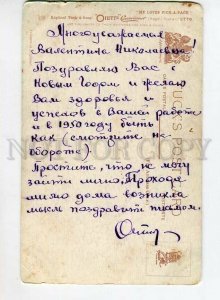 Многоуважаемая
Валентина Николаевна!
Поздравляю Вас с
Новым Годом и желаю
Вам здоровья и
успехов в Вашей работе
и в 1950 году быть,
как (смотрите на
обороте).
Простите, что не могу
зайти лично. Проходя
мимо дома возникла
мысль поздравить письмом.